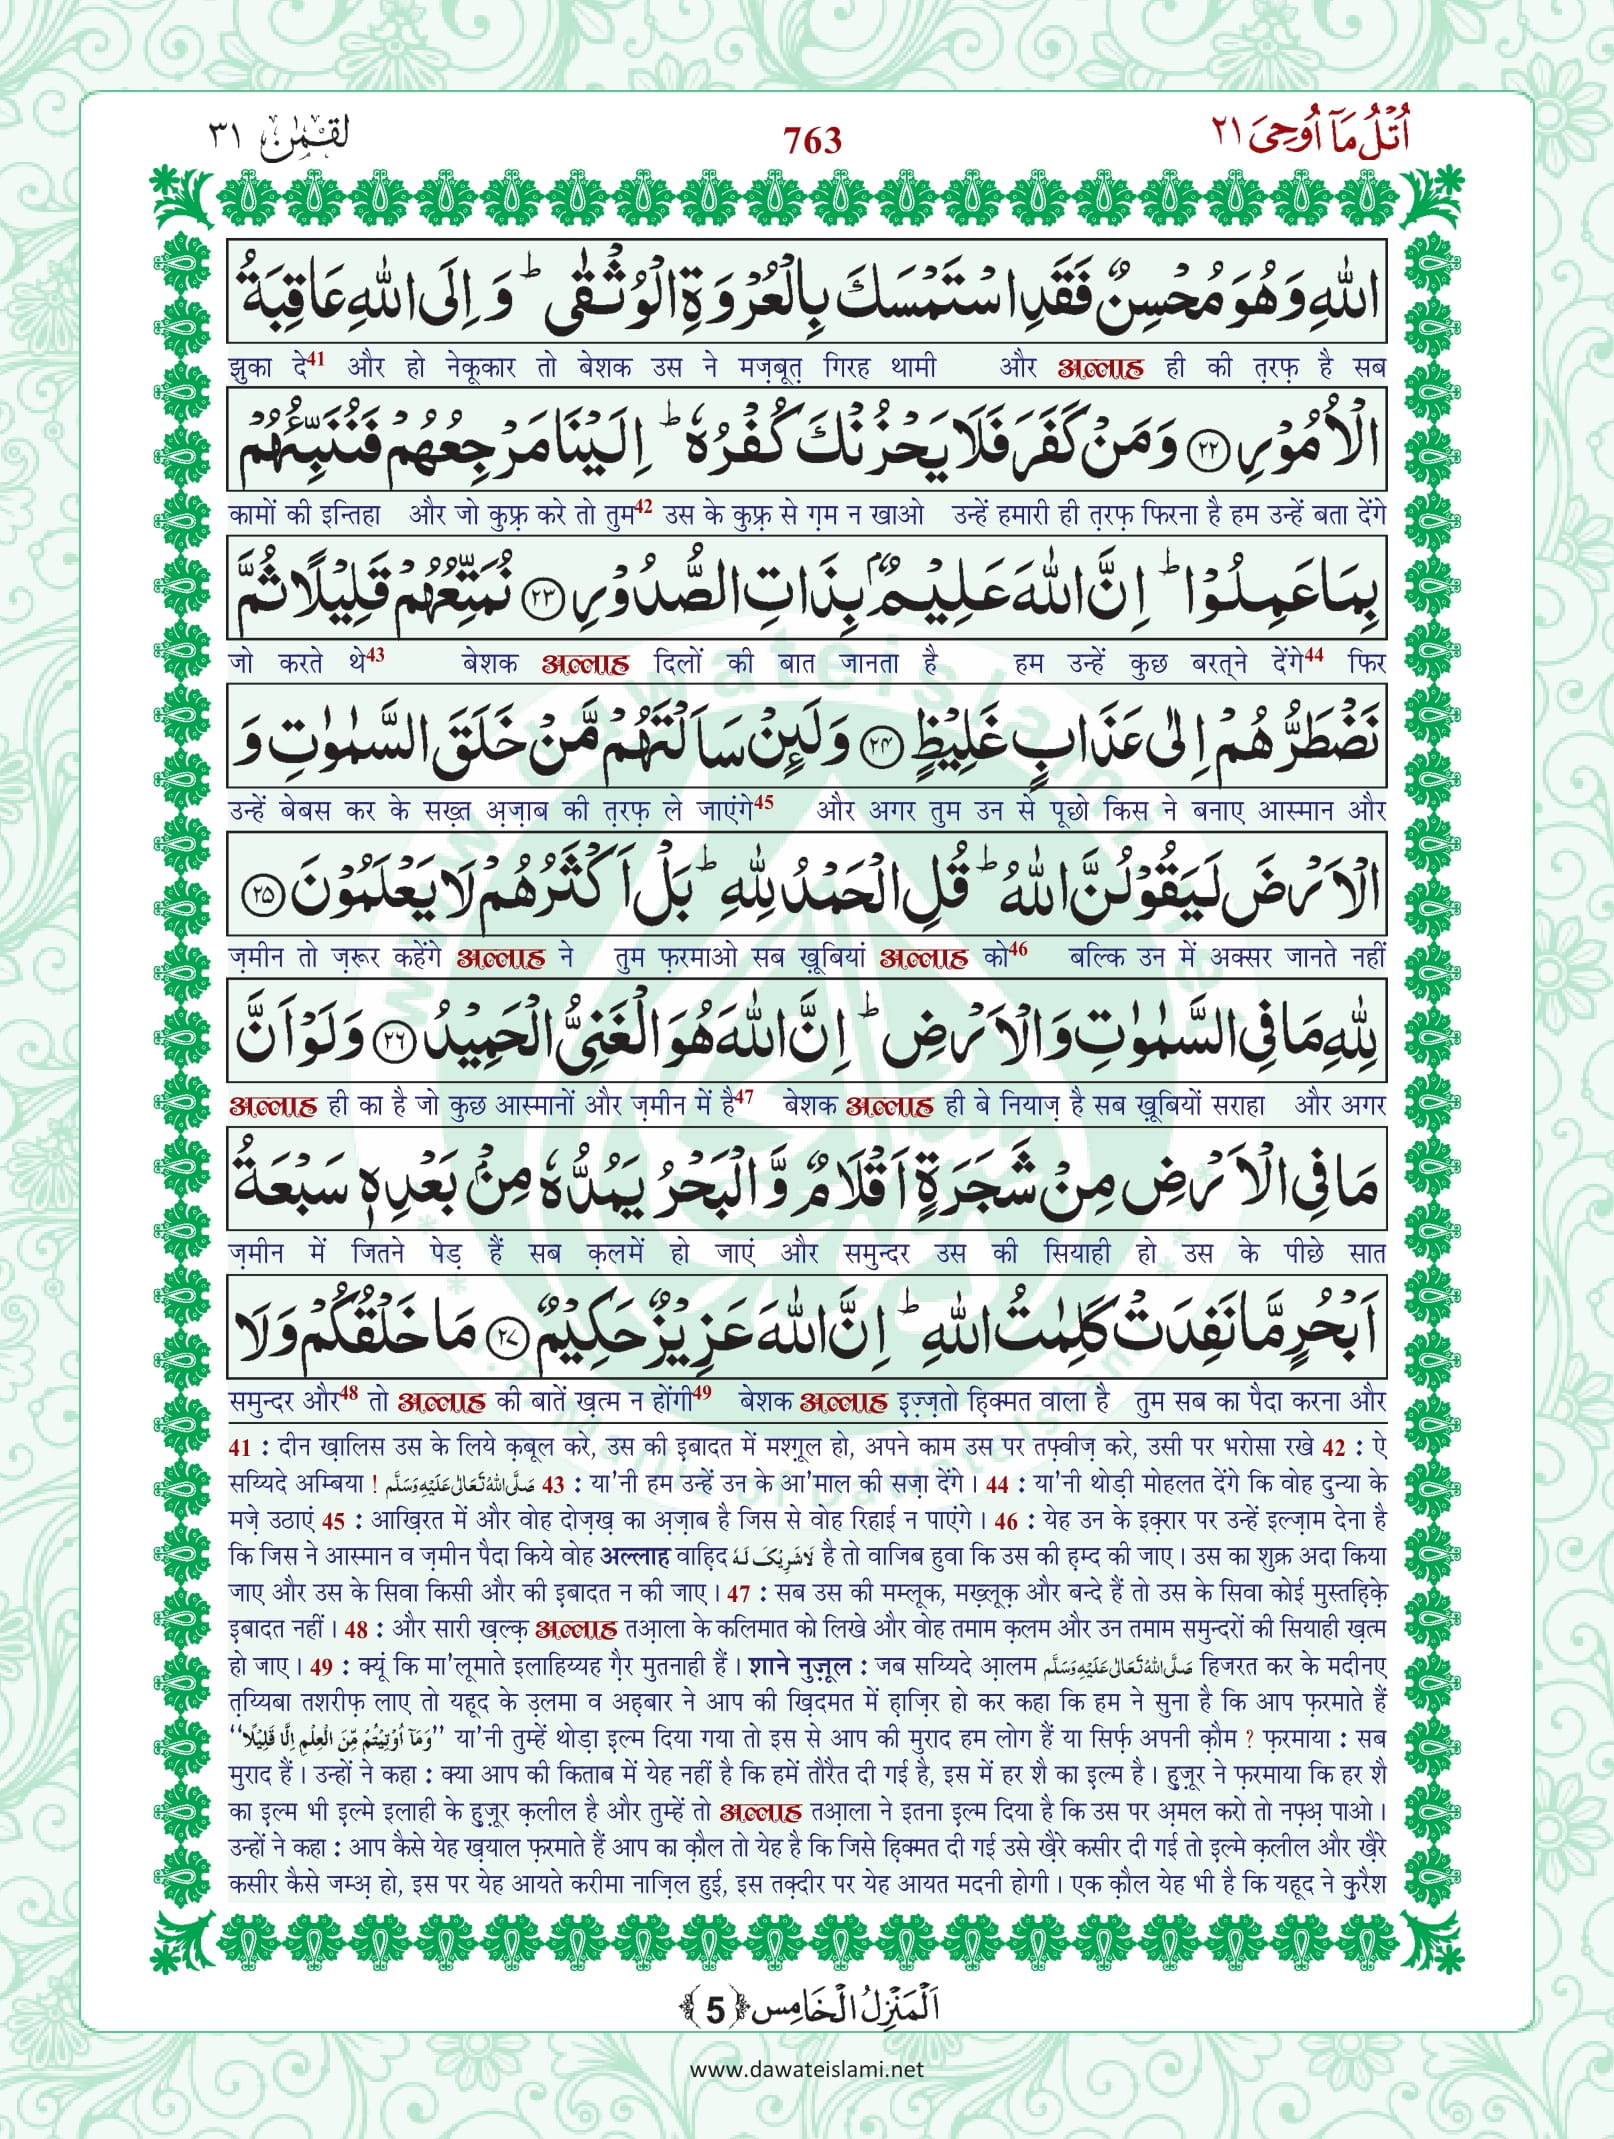 اُتْلُ مَاۤ اُوْحِیَ ٢١
763
لقمٰن ٣١
اللّٰهِ وَ هُوَ مُحْسِنٌ فَقَدِ اسْتَمْسَكَ بِالْعُرْوَةِ الْوُثْقٰىؕ وَ اِلَى اللّٰهِ عَاقِبَةُ
झुका दे41 और हो नेकूकार तो बेशक उस ने मज़बूत़ गिरह थामी और अल्लाह ही की त़रफ़ है सब
الْاُمُوْرِ ﴿۲۲﴾ وَ مَنْ كَفَرَ فَلَا یَحْزُنْكَ كُفْرُهٗؕ اِلَیْنَا مَرْجِعُهُمْ فَنُنَبِّئُهُمْ
कामों की इन्तिहा और जो कुफ़्र करे तो तुम42 उस के कुफ़्र से ग़म न खाओ उन्हें हमारी ही त़रफ़ फिरना है हम उन्हें बता देंगे
بِمَا عَمِلُوْاؕ اِنَّ اللّٰهَ عَلِیْمٌۢ بِذَاتِ الصُّدُوْرِ ﴿۲۳﴾ نُمَتِّعُهُمْ قَلِیْلًا ثُمَّ
जो करते थे43 बेशक अल्लाह दिलों की बात जानता है हम उन्हें कुछ बरत्ने देंगे44 फिर
نَضْطَرُّهُمْ اِلٰى عَذَابٍ غَلِیْظٍ ﴿۲۴﴾ وَ لَىِٕنْ سَاَلْتَهُمْ مَّنْ خَلَقَ السَّمٰوٰتِ وَ
उन्हें बेबस कर के सख़्त अ़ज़ाब की त़रफ़ ले जाएंगे45 और अगर तुम उन से पूछो किस ने बनाए आस्मान और
الْاَرْضَ لَیَقُوْلُنَّ اللّٰهُؕ قُلِ الْحَمْدُ لِلّٰهِؕ بَلْ اَكْثَرُهُمْ لَا یَعْلَمُوْنَ ﴿۲۵﴾
ज़मीन तो ज़रूर कहेंगे अल्लाह ने तुम फ़रमाओ सब ख़ूबियां अल्लाह को46 बल्कि उन में अक्सर जानते नहीं
لِلّٰهِ مَا فِی السَّمٰوٰتِ وَ الْاَرْضِؕ اِنَّ اللّٰهَ هُوَ الْغَنِیُّ الْحَمِیْدُ ﴿۲۶﴾ وَ لَوْ اَنَّ
अल्लाह ही का है जो कुछ आस्मानों और ज़मीन में है47 बेशक अल्लाह ही बे नियाज़ है सब ख़ूबियों सराहा और अगर
مَا فِی الْاَرْضِ مِنْ شَجَرَةٍ اَقْلَامٌ وَّ الْبَحْرُ یَمُدُّهٗ مِنْۢ بَعْدِهٖ سَبْعَةُ
ज़मीन में जितने पेड़ हैं सब क़लमें हो जाएं और समुन्दर उस की सियाही हो उस के पीछे सात
اَبْحُرٍ مَّا نَفِدَتْ كَلِمٰتُ اللّٰهِؕ اِنَّ اللّٰهَ عَزِیْزٌ حَكِیْمٌ ﴿۲۷﴾ مَا خَلْقُكُمْ وَ لَا
समुन्दर और48 तो अल्लाह की बातें ख़त्म न होंगी49 बेशक अल्लाह इ़ज़्ज़तो हि़क्मत वाला है तुम सब का पैदा करना और
41 : दीन ख़ालिस उस के लिये क़बूल करे, उस की इ़बादत में मश्ग़ूल हो, अपने काम उस पर तफ़्वीज़ करे, उसी पर भरोसा रखे 42 : ऐ
सय्यिदे अम्बिया ! صَلَّى اللهُ تَعَالٰى عَلَيْهِ وَسَلَّم 43 : या'नी हम उन्हें उन के आ'माल की सज़ा देंगे। 44 : या'नी थोड़ी मोहलत देंगे कि वोह दुन्या के
मज़े उठाएं 45 : आख़िरत में और वोह दोज़ख़ का अ़ज़ाब है जिस से वोह रिहाई न पाएंगे। 46 : येह उन के इक़्रार पर उन्हें इल्ज़ाम देना है
कि जिस ने आस्मान व ज़मीन पैदा किये वोह अल्लाह वाह़िद لَا شَرِيْكَ لَهٗ है तो वाजिब हुवा कि उस की ह़म्द की जाए। उस का शुक्र अदा किया
जाए और उस के सिवा किसी और की इ़बादत न की जाए। 47 : सब उस की मम्लूक, मख़्लूक़ और बन्दे हैं तो उस के सिवा कोई मुस्तह़िक़े
इ़बादत नहीं। 48 : और सारी ख़ल्क़ अल्लाह तआ़ला के कलिमात को लिखे और वोह तमाम क़लम और उन तमाम समुन्दरों की सियाही ख़त्म
हो जाए। 49 : क्यूं कि मा'लूमाते इलाहिय्यह ग़ैर मुतनाही हैं। शाने नुज़ूल : जब सय्यिदे आ़लम صَلَّى اللهُ تَعَالٰى عَلَيْهِ وَسَلَّم हिजरत कर के मदीनए
त़य्यिबा तशरीफ़ लाए तो यहूद के उ़लमा व अह़बार ने आप की ख़िदमत में ह़ाज़िर हो कर कहा कि हम ने सुना है कि आप फ़रमाते हैं
"وَمَآ اُوْتِيْتُمْ مِّنَ الْعِلْمِ اِلَّا قَلِيْلًا" या'नी तुम्हें थोड़ा इल्म दिया गया तो इस से आप की मुराद हम लोग हैं या सिर्फ़ अपनी क़ौम ? फ़रमाया : सब
मुराद हैं। उन्हों ने कहा : क्या आप की किताब में येह नहीं है कि हमें तौरैत दी गई है, इस में हर शै का इल्म है। हुज़ूर ने फ़रमाया कि हर शै
का इल्म भी इल्मे इलाही के हुज़ूर क़लील है और तुम्हें तो अल्लाह तआ़ला ने इतना इल्म दिया है कि उस पर अ़मल करो तो नफ़्अ़ पाओ।
उन्हों ने कहा : आप कैसे येह ख़याल फ़रमाते हैं आप का क़ौल तो येह है कि जिसे हि़क्मत दी गई उसे ख़ैरे कसीर दी गई तो इल्मे क़लील और ख़ैरे
कसीर कैसे जम्अ़ हो, इस पर येह आयते करीमा नाज़िल हुई, इस तक़्दीर पर येह आयत मदनी होगी। एक क़ौल येह भी है कि यहूद ने क़ुरैश
اَلْمَنْزِلُ الْخَامِس ﴿5﴾
www.dawateislami.net